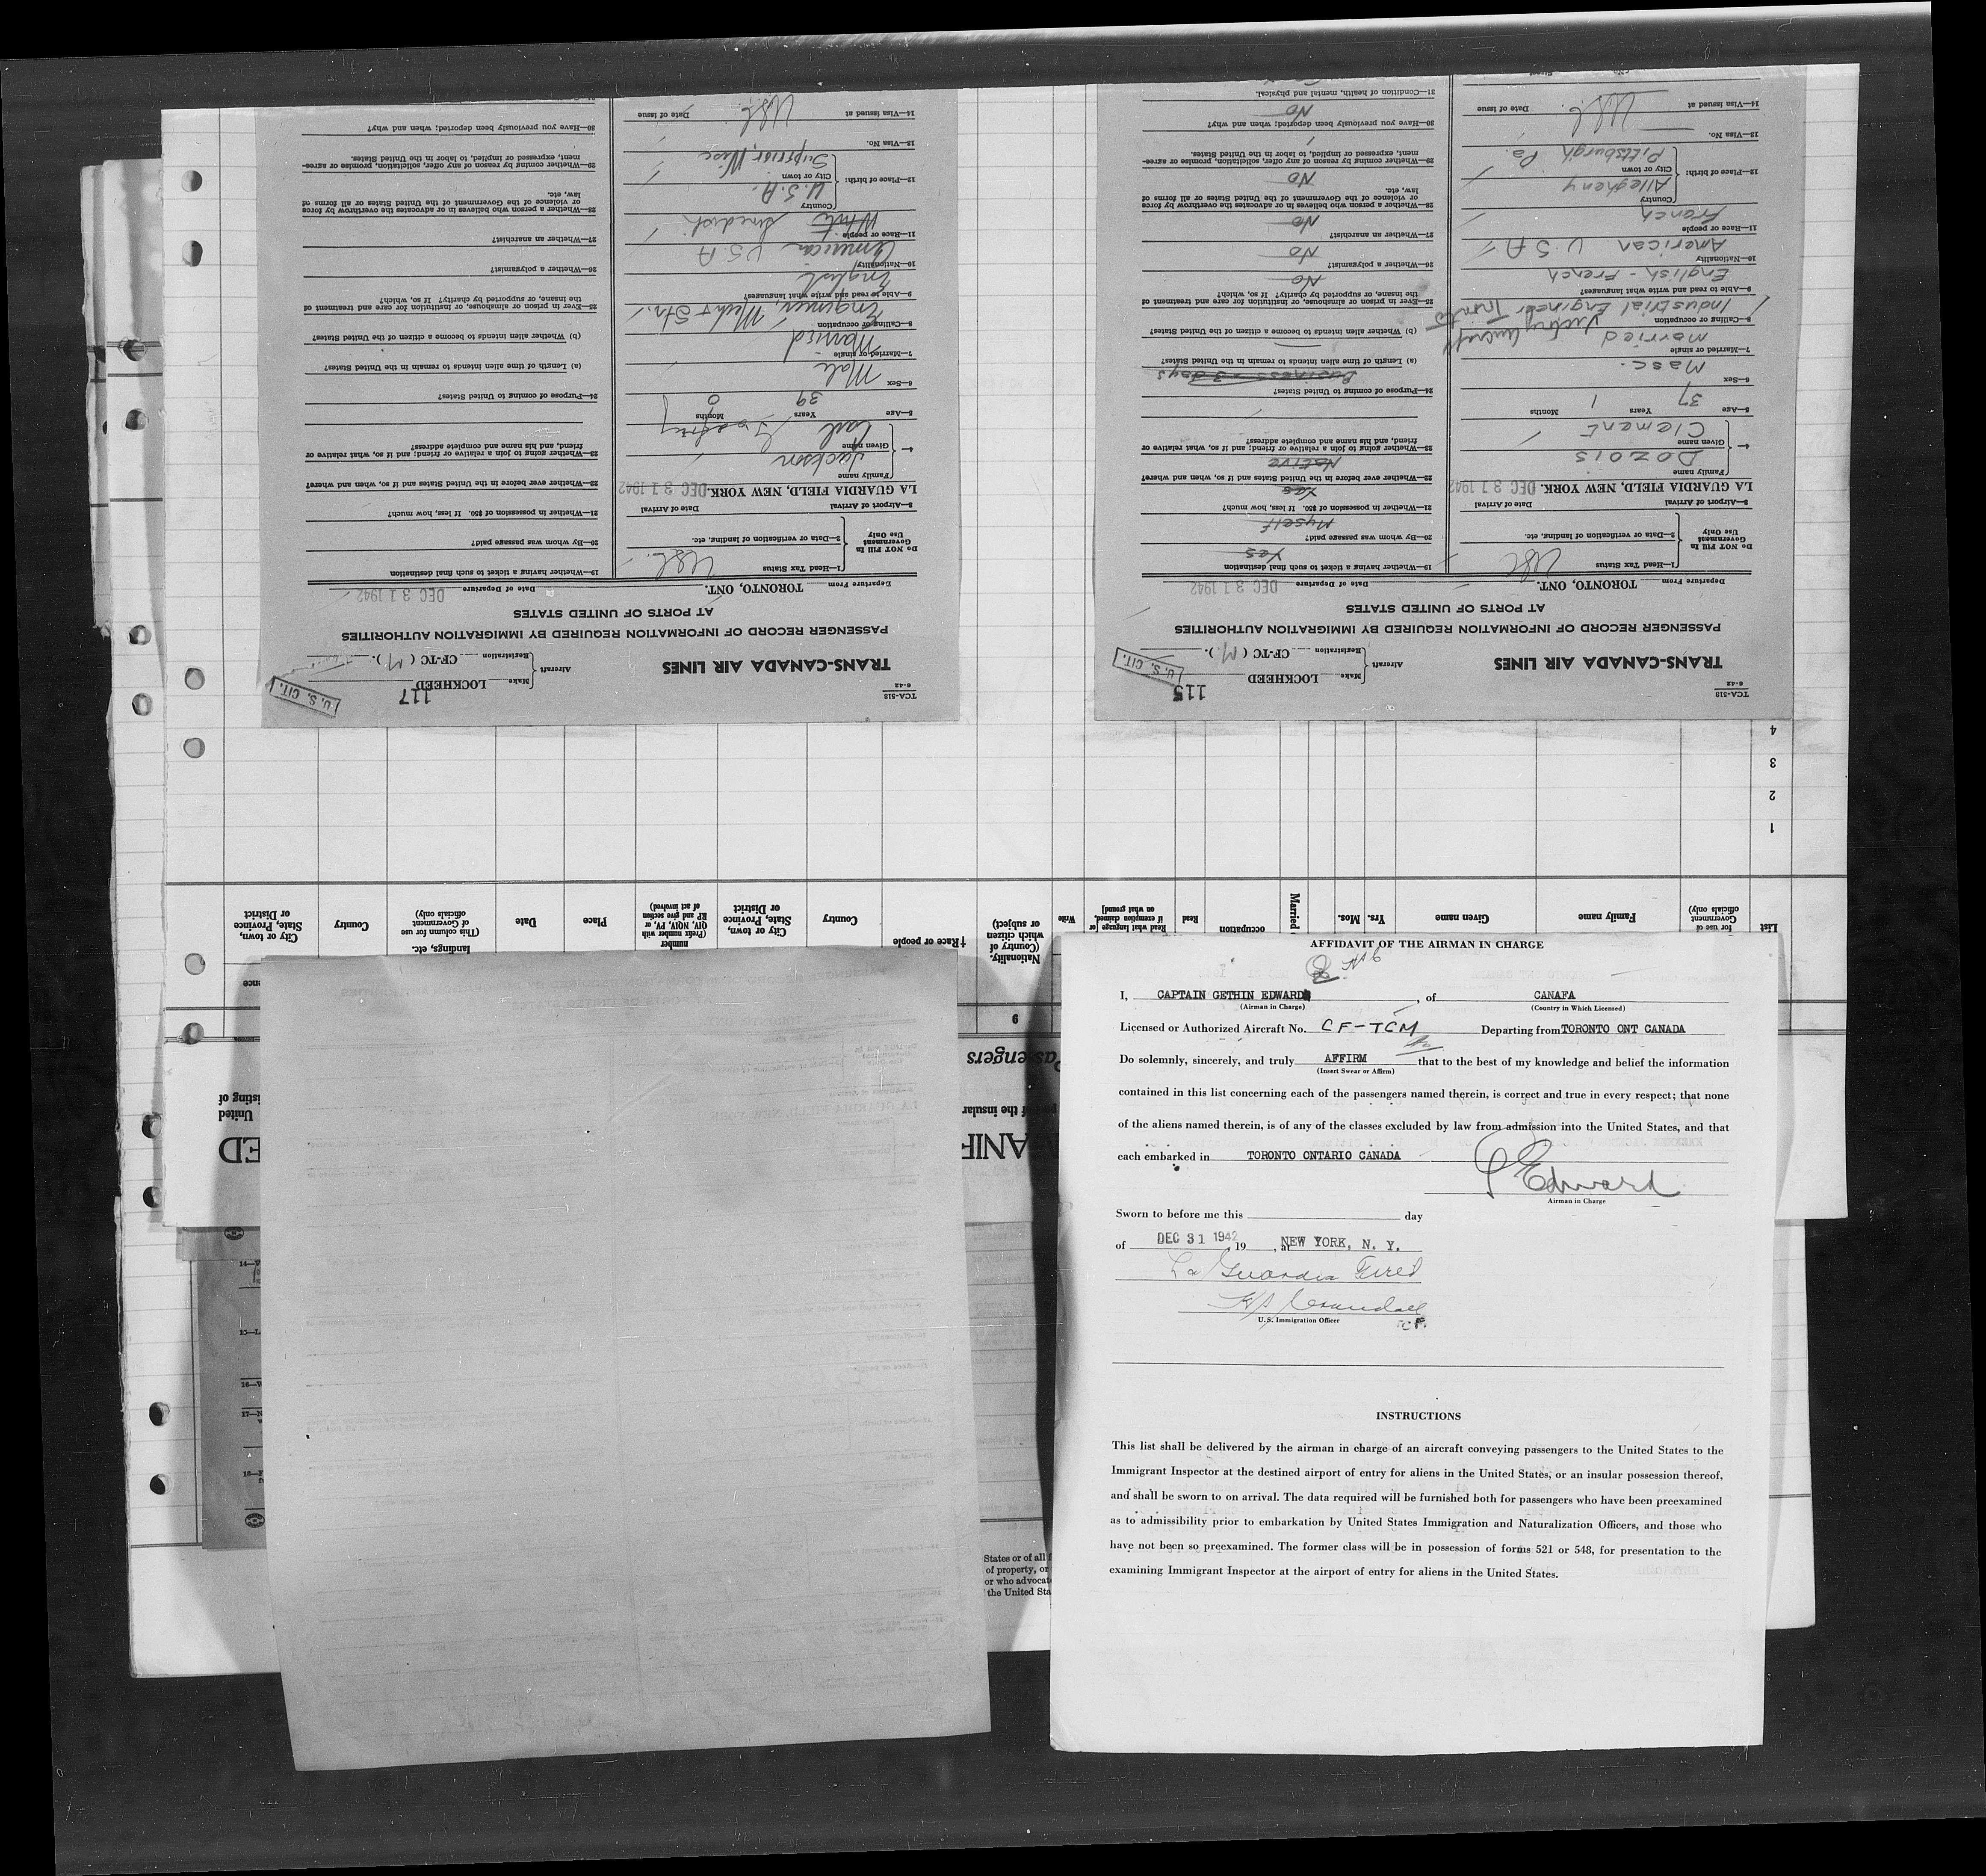 AFFIDAVIT OF THE AIRMAN IN CHARGE
I, CAPTAIN GETHIN EDWARD, of CANAFA
(Airman in Charge) (Country in Which Licensed)
Licensed or Authorized Aircraft No. CF-TCM Departing from TORONTO ONT CANADA
Do solemnly, sincerely, and truly AFFIRM that to the best of my knowledge and belief the information
(Insert Swear or Affirm)
contained in this list concerning each of the passengers named therein, is correct and true in every respect; that none
of the aliens named therein, is of any of the classes excluded by law from admission into the United States, and that
each embarked in TORONTO ONTARIO CANADA
Edward
Airman in Charge
Sworn to before me this day
of DEC 31 1942, 19 , at NEW YORK, N. Y.
La Guardia Field
U. S. Immigration Officer
INSTRUCTIONS
This list shall be delivered by the airman in charge of an aircraft conveying passengers to the United States to the
Immigrant Inspector at the destined airport of entry for aliens in the United States, or an insular possession thereof,
and shall be sworn to on arrival. The data required will be furnished both for passengers who have been preexamined
as to admissibility prior to embarkation by United States Immigration and Naturalization Officers, and those who
have not been so preexamined. The former class will be in possession of forms 521 or 548, for presentation to the
examining Immigrant Inspector at the airport of entry for aliens in the United States.
States or of all
of property, or
or who advocat
the United Sta
TCA-518
6-42
115
U. S. CIT.
TRANS-CANADA AIR LINES
Aircraft { Make LOCKHEED
Registration CF-TC ( M ).
PASSENGER RECORD OF INFORMATION REQUIRED BY IMMIGRATION AUTHORITIES
AT PORTS OF UNITED STATES
Departure From TORONTO, ONT. Date of Departure DEC 31 1942
Do NOT Fill In
Government
Use Only
1—Head Tax Status USC
2—Data or verification of landing, etc.
3—Airport of Arrival Date of Arrival
LA GUARDIA FIELD, NEW YORK. DEC 31 1942
4— Family name DOZOIS
Given name Clement
5—Age 37 Years 1 Months
6—Sex Masc.
7—Married or single Married
8—Calling or occupation Industrial Engineer Victory Aircraft Toronto
9—Able to read and write what languages? English - French
10—Nationality American U.S.A
11—Race or people French
12—Place of birth: Country Allegheny
City or town Pittsburgh Pa.
13—Visa No.
14—Visa Issued at USC Date of Issue
19—Whether having a ticket to such final destination Yes
20—By whom was passage paid? Myself
21—Whether in possession of $50. If less, how much? Yes
22—Whether ever before in the United States and if so, when and where? Native
23—Whether going to join a relative or friend; and if so, what relative or
friend, and his name and complete address?
24—Purpose of coming to United States? Business - 3 days
(a) Length of time alien intends to remain in the United States?
(b) Whether alien intends to become a citizen of the United States?
25—Ever in prison or almshouse, or institution for care and treatment of
the insane, or supported by charity? If so, which? No
26—Whether a polygamist? No
27—Whether an anarchist? No
28—Whether a person who believes in or advocates the overthrow by force
or violence of the Government of the United States or all forms of
law, etc. No
29—Whether coming by reason of any offer, solicitation, promise or agree-
ment, expressed or implied, to labor in the United States.
30—Have you previously been deported; when and why? No
31—Condition of health, mental and physical.
TCA-518
6-42
117
U. S. CIT.
TRANS-CANADA AIR LINES
Aircraft { Make LOCKHEED
Registration CF-TC ( M ).
PASSENGER RECORD OF INFORMATION REQUIRED BY IMMIGRATION AUTHORITIES
AT PORTS OF UNITED STATES
Departure From TORONTO, ONT. Date of Departure DEC 31 1942
Do NOT Fill In
Government
Use Only
1—Head Tax Status USC.
2—Data or verification of landing, etc.
3—Airport of Arrival Date of Arrival
LA GUARDIA FIELD, NEW YORK. DEC 31 1942
4— Family name Jackson
Given name Carl Godfrey
5—Age 39 Years 0 Months
6—Sex Male
7—Married or single Married
8—Calling or occupation Engineer, Mech & Str.
9—Able to read and write what languages? English
10—Nationality American USA
11—Race or people White Swedish
12—Place of birth: Country U.S.A.
City or town Superior, Wisc
13—Visa No.
14—Visa Issued at USC. Date of Issue
19—Whether having a ticket to such final destination
20—By whom was passage paid?
21—Whether in possession of $50. If less, how much?
22—Whether ever before in the United States and if so, when and where?
23—Whether going to join a relative or friend; and if so, what relative or
friend, and his name and complete address?
24—Purpose of coming to United States?
(a) Length of time alien intends to remain in the United States?
(b) Whether alien intends to become a citizen of the United States?
25—Ever in prison or almshouse, or institution for care and treatment of
the insane, or supported by charity? If so, which?
26—Whether a polygamist?
27—Whether an anarchist?
28—Whether a person who believes in or advocates the overthrow by force
or violence of the Government of the United States or all forms of
law, etc.
29—Whether coming by reason of any offer, solicitation, promise or agree-
ment, expressed or implied, to labor in the United States.
30—Have you previously been deported; when and why?
List
for use of
Government
officials only)
Family name
Given name
Yrs.
Mos.
Married
occupation
Read
Read what language [or
if exemption claimed,
on what ground]
Write
Nationality.
(Country of
which citizen
or subject)
†Race or people
Country
City or town,
State, Province
or District
number
(Prefix number with
QIV, NQIV, PV, or
RP and give section
of act involved)
Place
Date
landings, etc.
(This column for use
of Government
officials only)
Country
City or town,
State, Province
or District
1
2
3
4